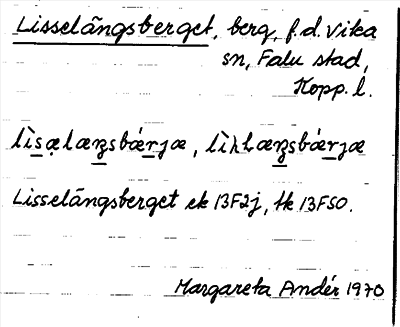 Lisselängsberget, berg, f.d. Vika
sn, Falu stad,
Kopp. l.
Lisselängsberget ek 13F2j, tk 13FSO.
Margareta Andér 1970